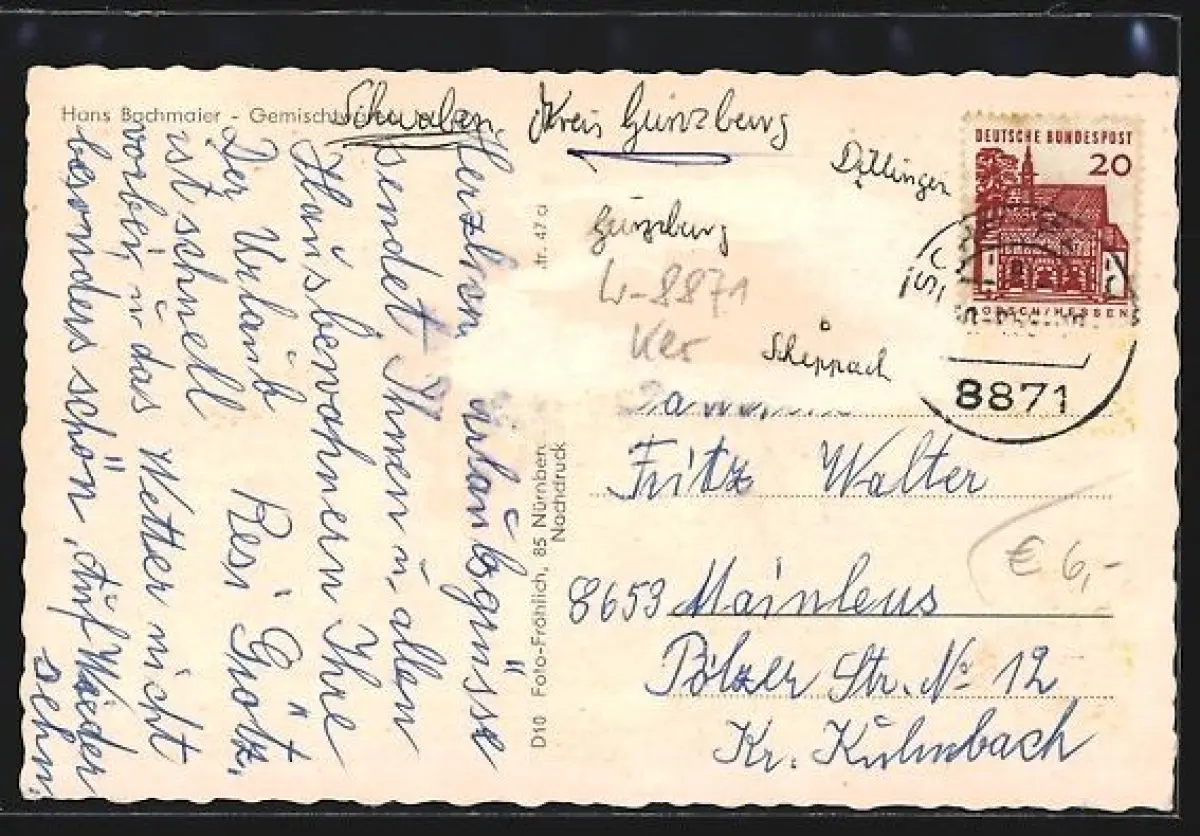 Hans Bachmaier - Gemischtw
Schwaben, Kreis Günzburg
Dillingen
DEUTSCHE BUNDESPOST
20
LORSCH/HESSEN
8871
Günzburg
W-8871
Scheppach
Herzlichen Urlaubsgrüsse
sendet Ihnen u. allen
Hausbewohnern Ihre
Resi Grötz.
Der Urlaub
ist schnell
vorbei, u das Wetter nicht
besonders schön, Auf Wieder
sehn.
D10 Foto-Fröhlich, 85 Nürnberg
Nachdruck
tr. 47 a
Fritz Walter
8653 Mainleus
Pölzer Str. No 12
Kr. Kulmbach
€ 6,-